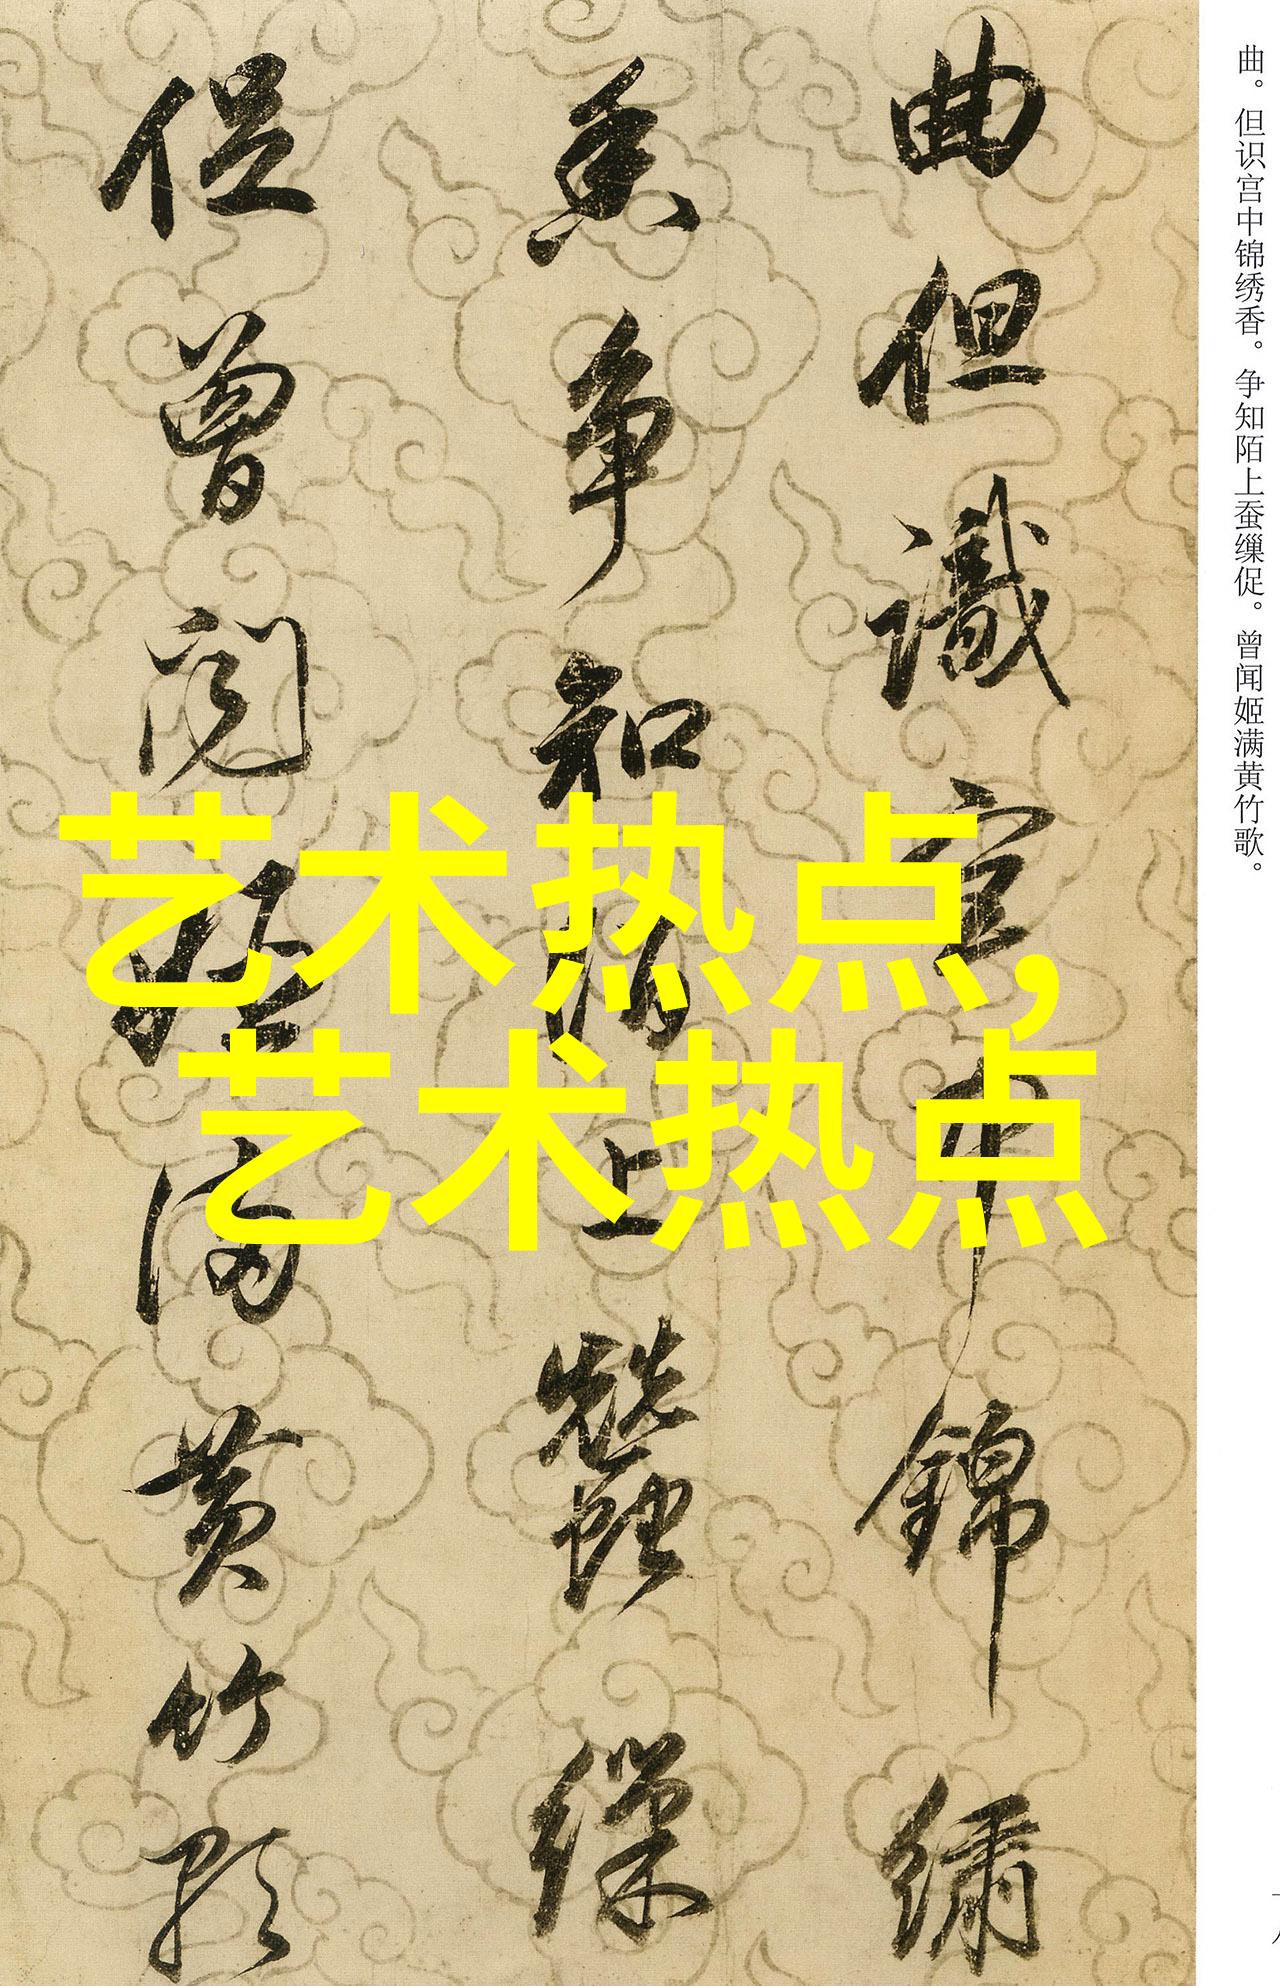 曲但識宫中錦繡
香争知陌上蠶繅
促曾聞姬滿黄竹歌
曲。但识宫中锦绣香。争知陌上蚕缫促。曾闻姬满黄竹歌。
艺术热点,
艺术热点